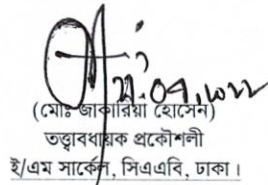 ২১.০৭.২০২২
(মোঃ জাকারিয়া হোসেন)
তত্ত্বাবধায়ক প্রকৌশলী
ই/এম সার্কেল, সিএএবি, ঢাকা।